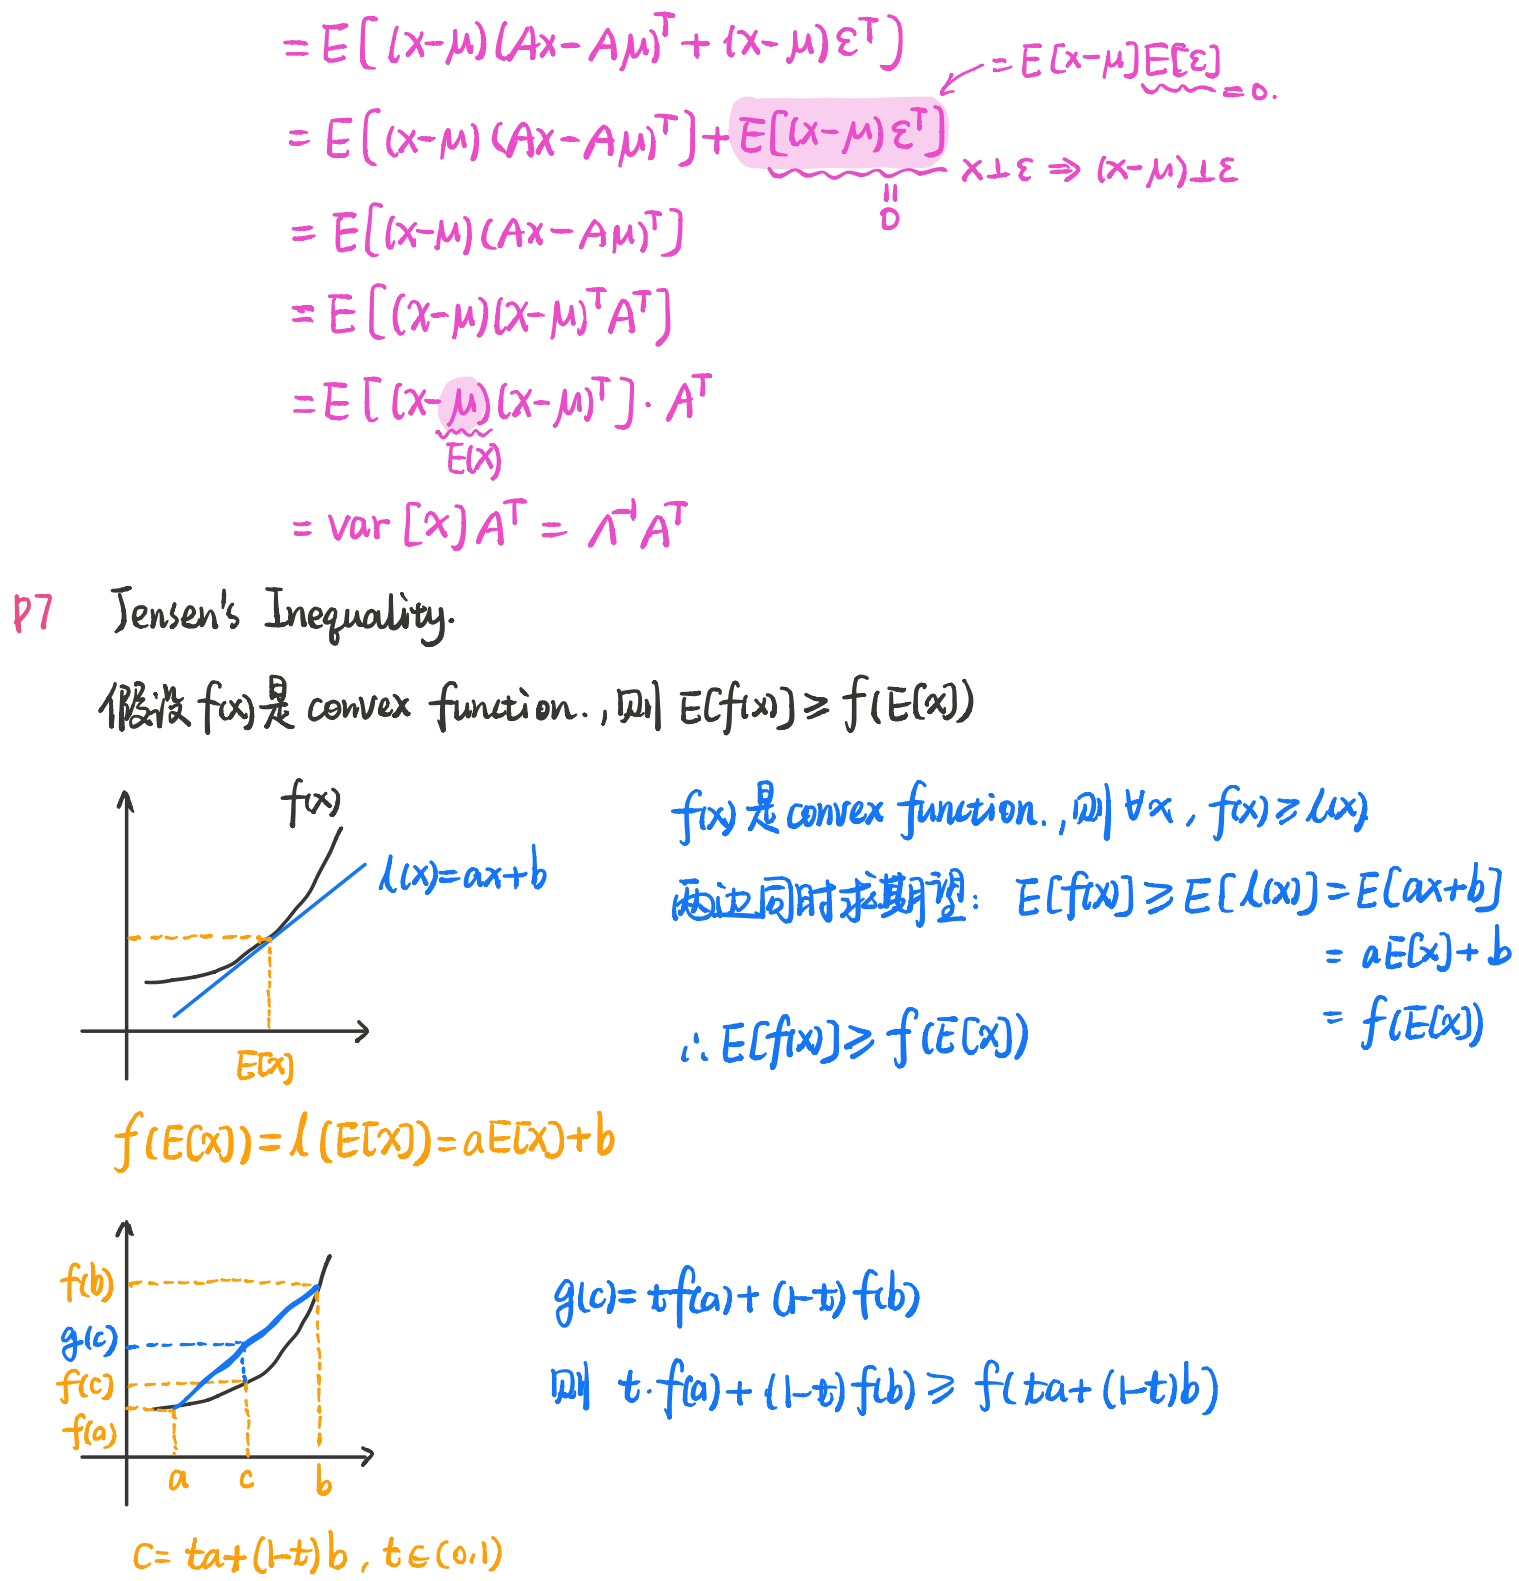 = E[(x-μ)(Ax-Aμ)ᵀ + (x-μ)εᵀ]
= E[x-μ]E[ε] = 0.
= E[(x-μ)(Ax-Aμ)ᵀ] + E[(x-μ)εᵀ]
x⊥ε ⇒ (x-μ)⊥ε
=
0
= E[(x-μ)(Ax-Aμ)ᵀ]
= E[(x-μ)(x-μ)ᵀAᵀ]
= E[(x-μ)(x-μ)ᵀ]·Aᵀ
E(x)
= var[x]Aᵀ = Λ⁻¹Aᵀ
P7 Jensen's Inequality.
假设 f(x) 是 convex function., 则 E[f(x)] ≥ f(E[x])
f(x)
l(x)=ax+b
E[x]
f(x) 是 convex function., 则 ∀x, f(x) ≥ l(x)
两边同时求期望: E[f(x)] ≥ E[l(x)] = E[ax+b]
= aE[x]+b
= f(E[x])
∴ E[f(x)] ≥ f(E[x])
f(E[x]) = l(E[x]) = aE[x]+b
f(b)
g(c)
f(c)
f(a)
a c b
g(c)= tf(a)+(1-t)f(b)
则 t·f(a)+(1-t)f(b) ≥ f(ta+(1-t)b)
c= ta+(1-t)b, t∈(0,1)